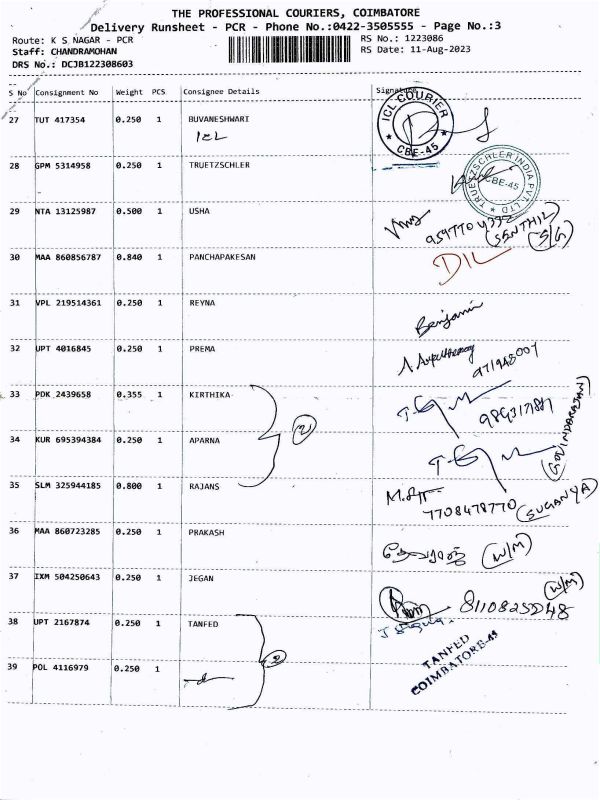 THE PROFESSIONAL COURIERS, COIMBATORE
Delivery Runsheet - PCR - Phone No.:0422-3505555 - Page No.:3
Route: K S NAGAR - PCR RS No.: 1223086
Staff: CHANDRAMOHAN RS Date: 11-Aug-2023
DRS No.: DCJB122308603
S No Consignment No Weight PCS Consignee Details Signature
27 TUT 417354 0.250 1 BUVANESHWARI
ICL
ICL COURIER
★ CBE-45 ★
28 GPM 5314958 0.250 1 TRUETZSCHLER
TRUETZSCHLER INDIA PVT. LTD ★
CBE-45
29 NTA 13125987 0.500 1 USHA
(SENTHIL)
(S/G)
30 MAA 860856787 0.840 1 PANCHAPAKESAN
DIL
31 VPL 219514361 0.250 1 REYNA
Benjamin
32 UPT 4016845 0.250 1 PREMA
33 PDK 2439658 0.355 1 KIRTHIKA
(2)
34 KUR 695394384 0.250 1 APARNA
35 SLM 325944185 0.800 1 RAJANS
7708478770 (SUGANYA)
36 MAA 860723285 0.250 1 PRAKASH
(W/M)
37 IXM 504250643 0.250 1 JEGAN
(W/M)
38 UPT 2167874 0.250 1 TANFED
(2)
TANFED
COIMBATORE-45
39 POL 4116979 0.250 1